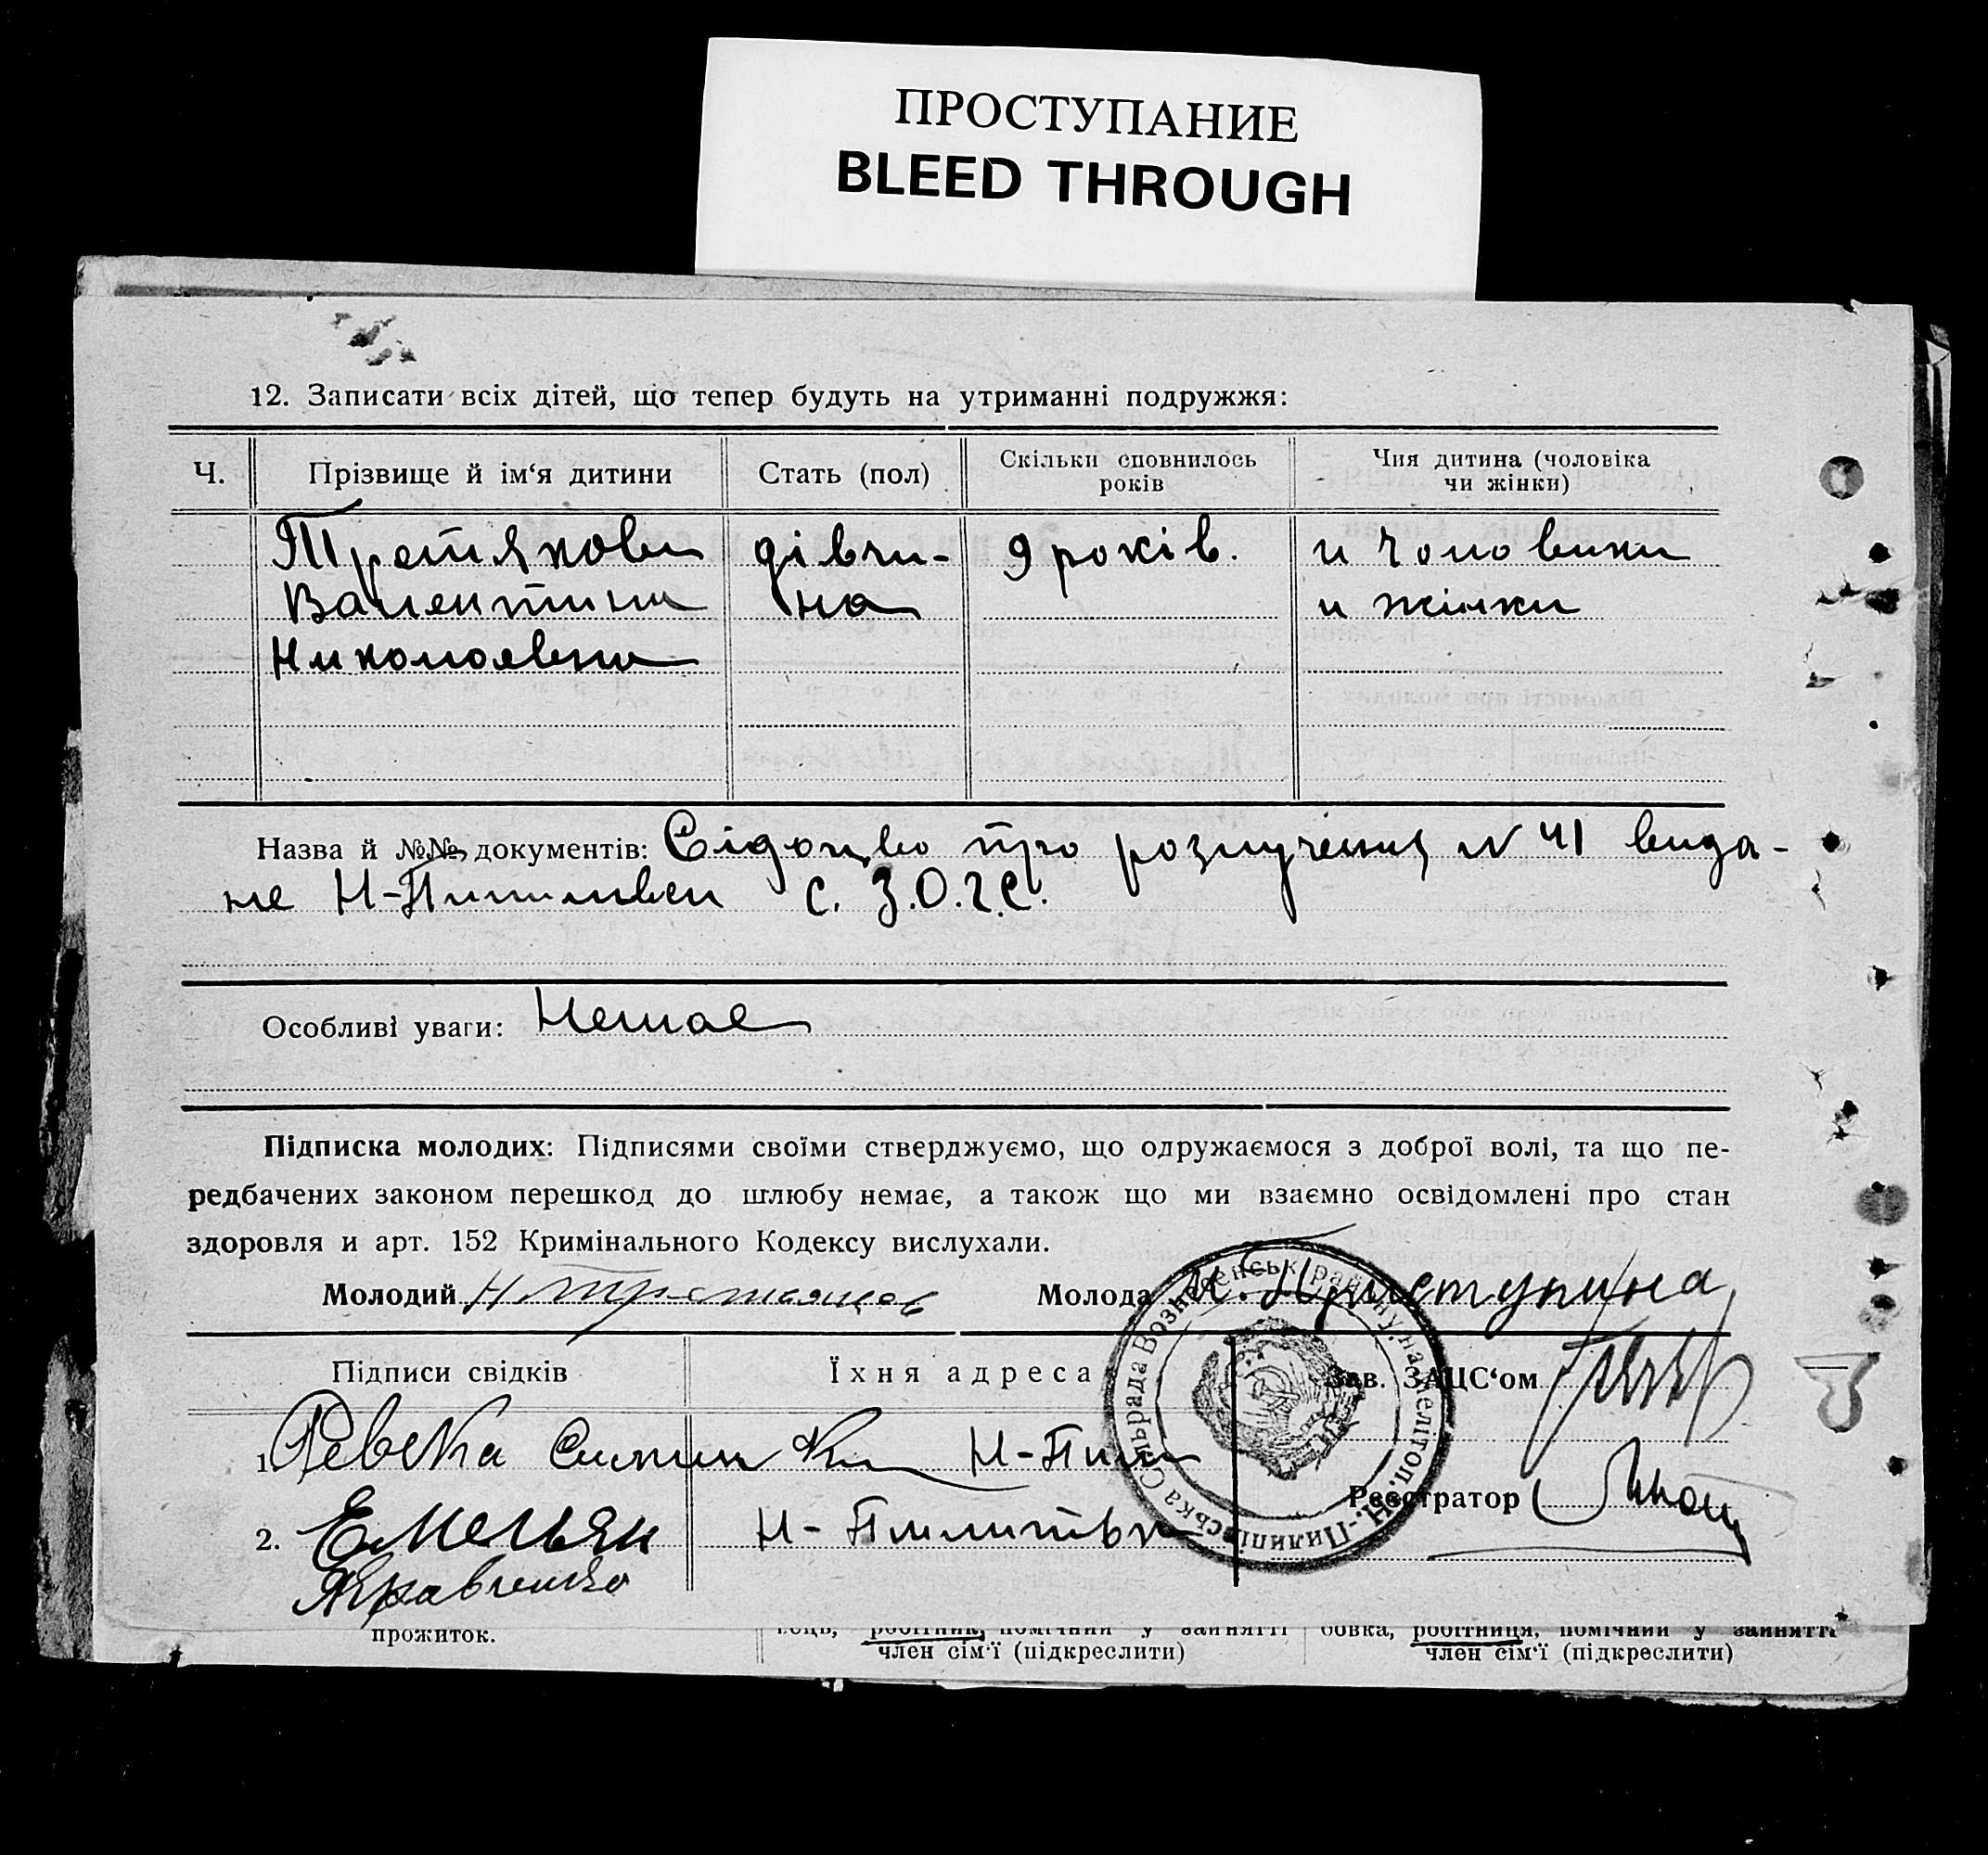 ПРОСТУПАНИЕ
BLEED THROUGH
12. Записати всіх дітей, що тепер будуть на утриманні подружжя:
Ч. Прізвище й ім‘я дитини Стать (пол) Скільки сповнилось років Чия дитина (чоловіка чи жінки)
Третякова дівчи- 9 років. и чоловики
Валентина на и жінки
Николаевна
Назва й №№ документів: про розлучения N 41 вида-
не Н- с. З.О.Г.С.
Особливі уваги: Немае
Підписка молодих: Підписями своїми стверджуємо, що одружаємося з доброї волі, та що пе-
редбачених законом перешкод до шлюбу немає, а також що ми взаємно освідомлені про стан
здоровля и арт. 152 Кримінального Кодексу вислухали.
Молодий Н Молода Приступина
Підписи свідків Їхня адреса Зав. ЗАЦС‘ом
1. Ревека Н-Пили
2. Емельян Н- Реєстратор
Кравченко
Н.-Пилипівська Сільрада Вознесенськ район, на Мелітоп.
прожиток. робітник, помічний у занятті бовка, робітниця, помічний у занятті
член сім‘ї (підкреслити) член сім‘ї (підкреслити)